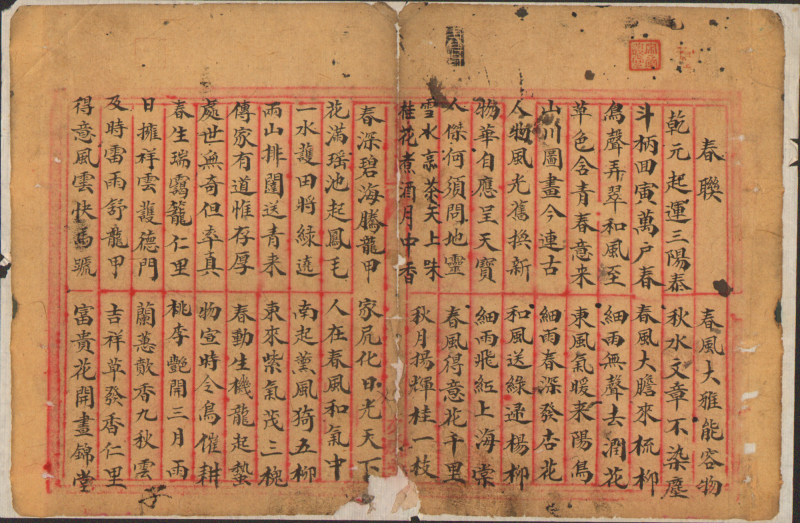 春聯
乾元起運三陽泰
斗柄回寅萬户春
鳥聲弄翠和風至
草色含青春意来
山川圖畫今連古
人物風光舊換新
物華自應呈天寶
人傑何須問地靈
雪水烹茶天上味
桂花煮酒月中香
春深碧海騰龍甲
花滿瑤池起鳳毛
一水護田將綠遶
兩山排闥送青来
傳家有道惟存厚
處世無奇但率真
春生瑞靄籠仁里
日擁祥雲護德門
及時雷雨舒龍甲
得意風雲快馬蹏
春風大雅能容物
秋水文章不染塵
春風大膽來梳柳
細雨無聲去潤花
東風氣暖来陽鳥
細雨春深發杏花
和風送綠遞楊柳
細雨飛紅上海棠
春風得意花千里
秋月揚輝桂一枝
家凥化日光天下
人在春風和氣中
南起薰風猗五柳
東來紫氣茂三槐
春動生機龍起蟄
物宣時令鳥催耕
桃李艷開三月雨
蘭蕙歕香九秋雲
吉祥草發香仁里
富貴花開晝錦堂